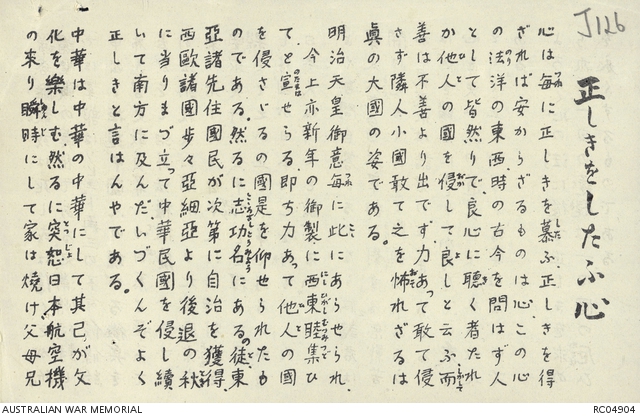 J126
正しきをしたふ心
心は毎に正しきを慕ふ正しきを得
ざれば安からざるものは心この心
の法洋の東西時の古今を問はず人
として皆然りで良心に聴く者たれ
か他人の國を侵して良しと云ふ而
善は不善より出でず力あって敢て侵
さず隣人小國敢て之を怖れざるは
真の大國の姿である。
明治天皇御意毎に此にあらせられ、
今上亦新年の御製に西東睦集ひ
て、と宣せらる即ち力あって他人の國
を侵さゞるの國是を仰せられたも
のである。然るに志功名にあるの徒東
亞諸先住國民が次第に自治を獲得、
西歐諸國歩々亞細亞より後退の秋
に当りまづ立って中華民國を侵し續
いて南方に及んだいづくんぞよく
正しきと言はんやである。
中華は中華の中華にして其己が文
化を楽しむ、然るに突恕日本航空機
の来り瞬時にして家は焼け父母兄
AUSTRALIAN WAR MEMORIAL
RC04904